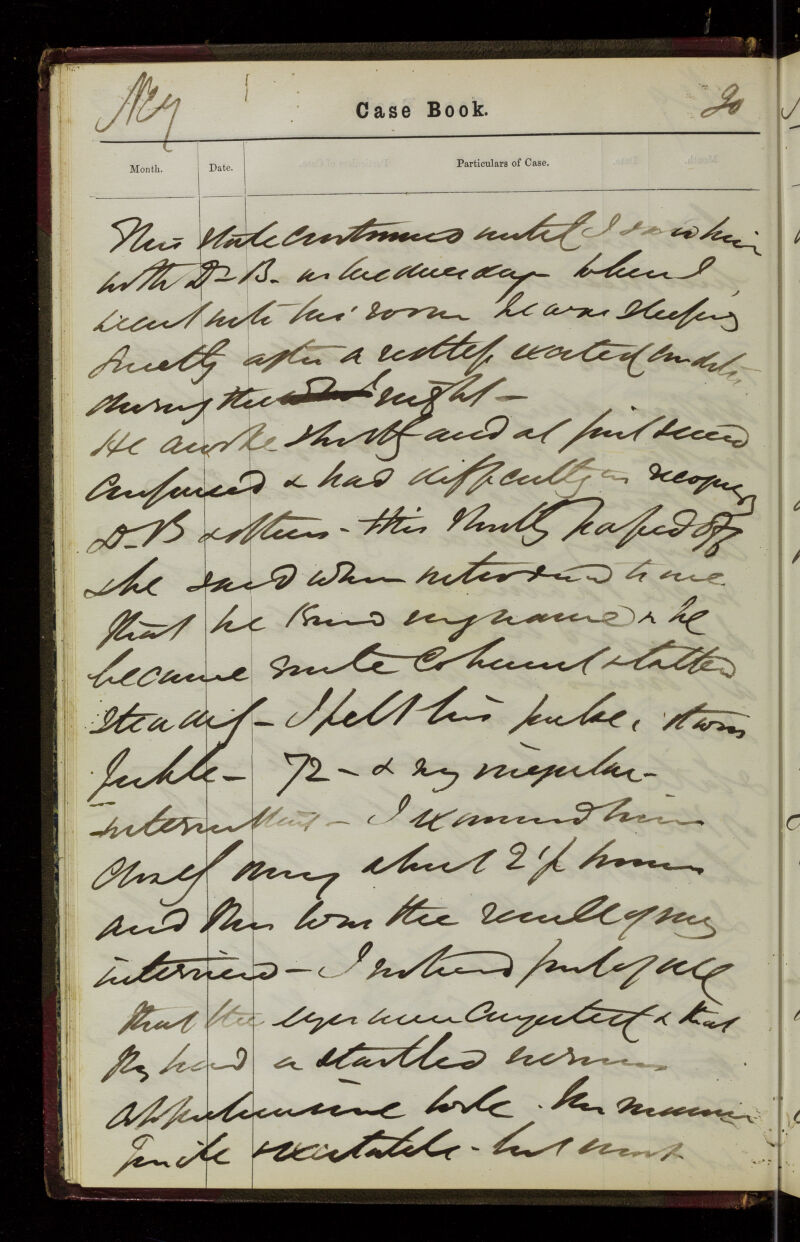 Case Book.
20
Month. Date. Particulars of Case.
This state continued until I saw him
with Dr B. on Wednesday when I
went into his room he was sleeping
quietly after a restless excited condition
during the night -
He awoke shortly and at first seemed
confused & had difficulty in recognising
Dr B & others - this shortly passed off
& he said when introduced to me
that he knew my name & he
became quite coherent & talked
steadily - I felt his pulse, it was
feeble - 72 - & very irregular -
intermittent - I examined him
closely during about 2 1/2 hours
and this was the result of my
interview - I noticed first of all
that the eyes were congested & that
they had a startled nervous
apprehensive look. His manner
quite excitable - but most